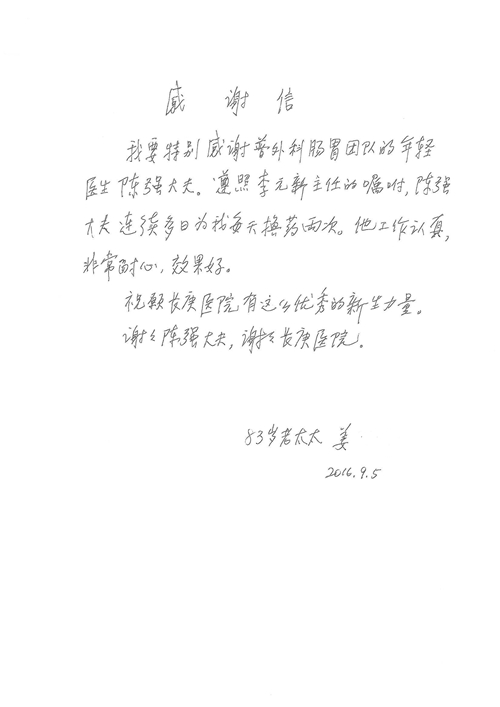 感谢信
我要特别感谢普外科肠胃团队的年轻
医生陈强大夫。遵照李元新主任的嘱咐,陈强
大夫连续多日为我每天换药两次。他工作认真,
非常耐心,效果好。
祝愿长庚医院有这么优秀的新生力量。
谢谢陈强大夫,谢谢长庚医院。
83岁老太太 姜
2016.9.5